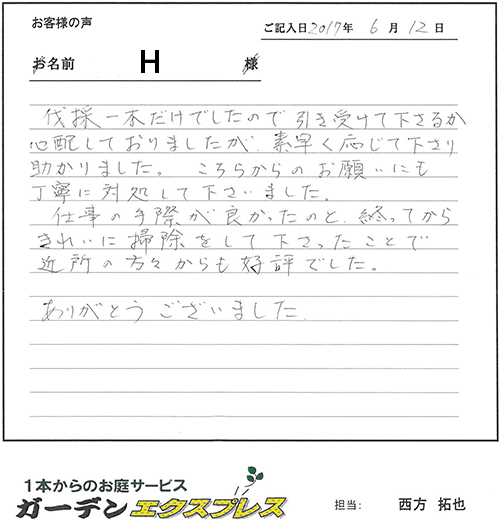 お客様の声
ご記入日2017年 6月12日
お名前 H 様
伐採一本だけでしたので引き受けて下さるか
心配しておりましたが、素早く応じて下さり
助かりました。こちらからのお願いにも
丁寧に対処して下さいました。
仕事の手際が良かったのと、終ってから
きれいに掃除をして下さったことで
近所の方々からも好評でした。
ありがとうございました。
1本からのお庭サービス
ガーデンエクスプレス
担当: 西方 拓也